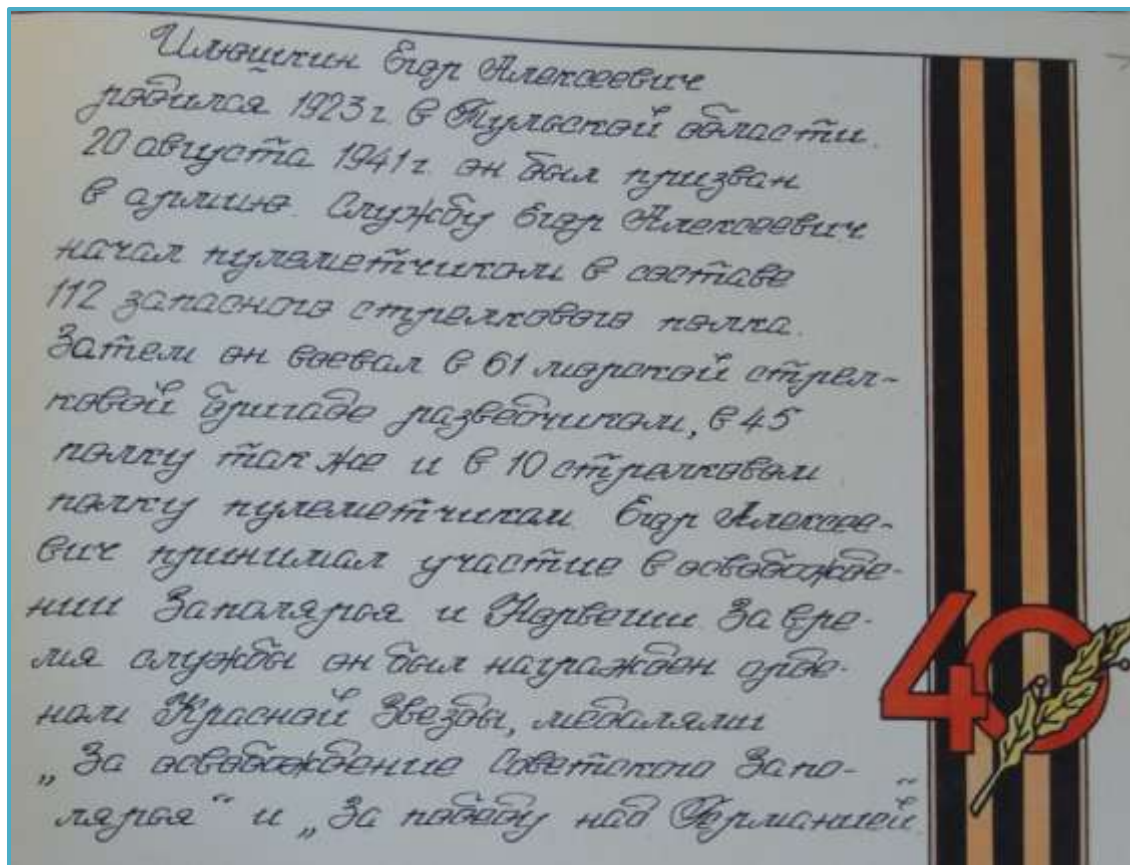 Илюшкин Егор Алексеевич
родился 1923 г. в Тульской области.
20 августа 1941 г. он был призван
в армию. Службу Егор Алексеевич
начал пулеметчиком в составе
112 запасного стрелкового полка.
Затем он воевал в 61 морской стрел-
ковой бригаде разведчиком, в 45
полку так же и в 10 стрелковом
полку пулеметчиком. Егор Алексее-
вич принимал участие в освобожде-
нии Заполярья и Норвегии. За вре-
мя службы он был награжден орде-
ном Красной Звезды, медалями
„За освобождение Советского Запо-
лярья“ и „За победу над Германией“
40